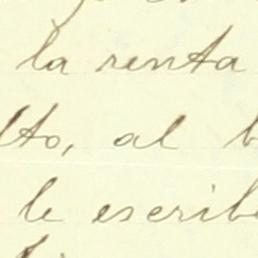 la renta
lto, al b
le escrib